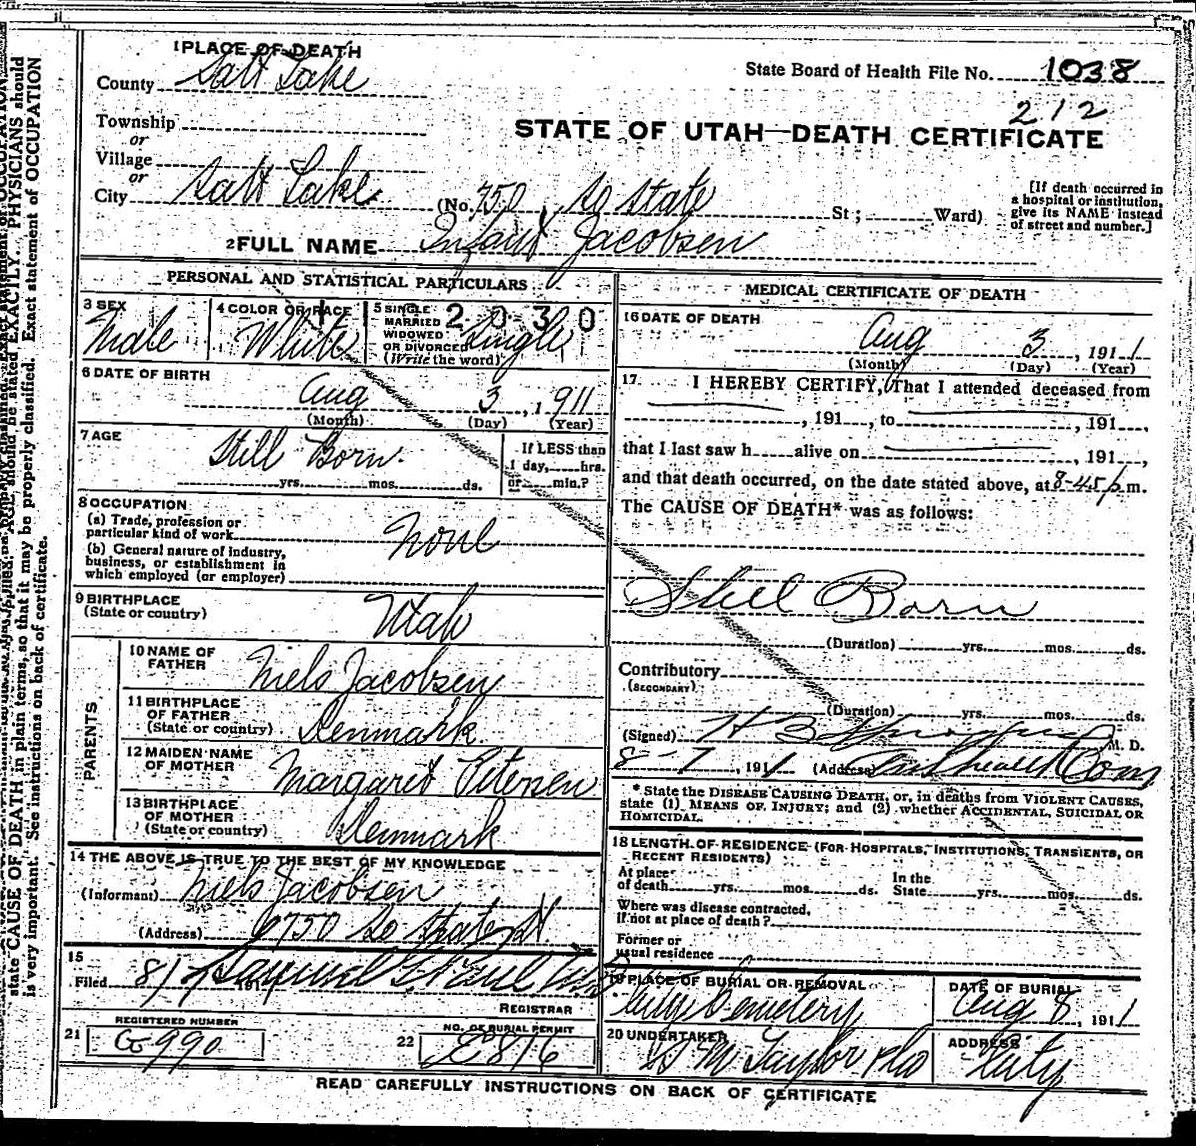 1 PLACE OF DEATH
County Salt Lake
State Board of Health File No. 1038
212
Township
or
Village
or
STATE OF UTAH—DEATH CERTIFICATE
City Salt Lake (No. 750, So State St; Ward)
[If death occurred in
a hospital or institution,
give its NAME instead
of street and number.]
2 FULL NAME Infant Jacobsen
PERSONAL AND STATISTICAL PARTICULARS
3 SEX
Male
4 COLOR OR RACE
White
5 SINGLE
MARRIED
WIDOWED
OR DIVORCED
(Write the word)
Single
2030
6 DATE OF BIRTH
Aug 3, 1911
(Month) (Day) (Year)
7 AGE
Still Born.
yrs. mos. ds.
If LESS than
1 day, hrs.
or min.?
8 OCCUPATION
(a) Trade, profession or
particular kind of work
None
(b) General nature of industry,
business, or establishment in
which employed (or employer)
9 BIRTHPLACE
(State or country)
Utah
PARENTS
10 NAME OF
FATHER
Niels Jacobsen
11 BIRTHPLACE
OF FATHER
(State or country)
Denmark
12 MAIDEN NAME
OF MOTHER
Margaret Petersen
13 BIRTHPLACE
OF MOTHER
(State or country)
Denmark
14 THE ABOVE IS TRUE TO THE BEST OF MY KNOWLEDGE
(Informant) Niels Jacobsen
(Address) 750 So State St.
15
Filed 8/7 191 Samuel G. Paul
REGISTRAR
21
REGISTERED NUMBER
G 990
22
NO. OF BURIAL PERMIT
E 816
MEDICAL CERTIFICATE OF DEATH
16 DATE OF DEATH
Aug 3, 1911
(Month) (Day) (Year)
17 I HEREBY CERTIFY, That I attended deceased from
, 191 , to , 191 ,
that I last saw h alive on , 191 ,
and that death occurred, on the date stated above, at 8-45 p m.
The CAUSE OF DEATH* was as follows:
Still Born
(Duration) yrs. mos. ds.
Contributory
(SECONDARY)
(Duration) yrs. mos. ds.
(Signed) H B M. D.
8-7, 1911 (Address) Health Com
* State the DISEASE CAUSING DEATH, or, in deaths from VIOLENT CAUSES,
state (1) MEANS OF INJURY; and (2) whether ACCIDENTAL, SUICIDAL OR
HOMICIDAL.
18 LENGTH OF RESIDENCE (FOR HOSPITALS, INSTITUTIONS, TRANSIENTS, OR
RECENT RESIDENTS)
At place
of death yrs. mos. ds.
In the
State yrs. mos. ds.
Where was disease contracted,
if not at place of death?
Former or
usual residence
19 PLACE OF BURIAL OR REMOVAL
City Cemetery
DATE OF BURIAL
Aug 8, 1911
20 UNDERTAKER
S M Taylor & Co
ADDRESS
City
READ CAREFULLY INSTRUCTIONS ON BACK OF CERTIFICATE
AGE should be stated EXACTLY. PHYSICIANS should
state CAUSE OF DEATH in plain terms, so that it may be properly classified. Exact statement of OCCUPATION
is very important. See instructions on back of certificate.